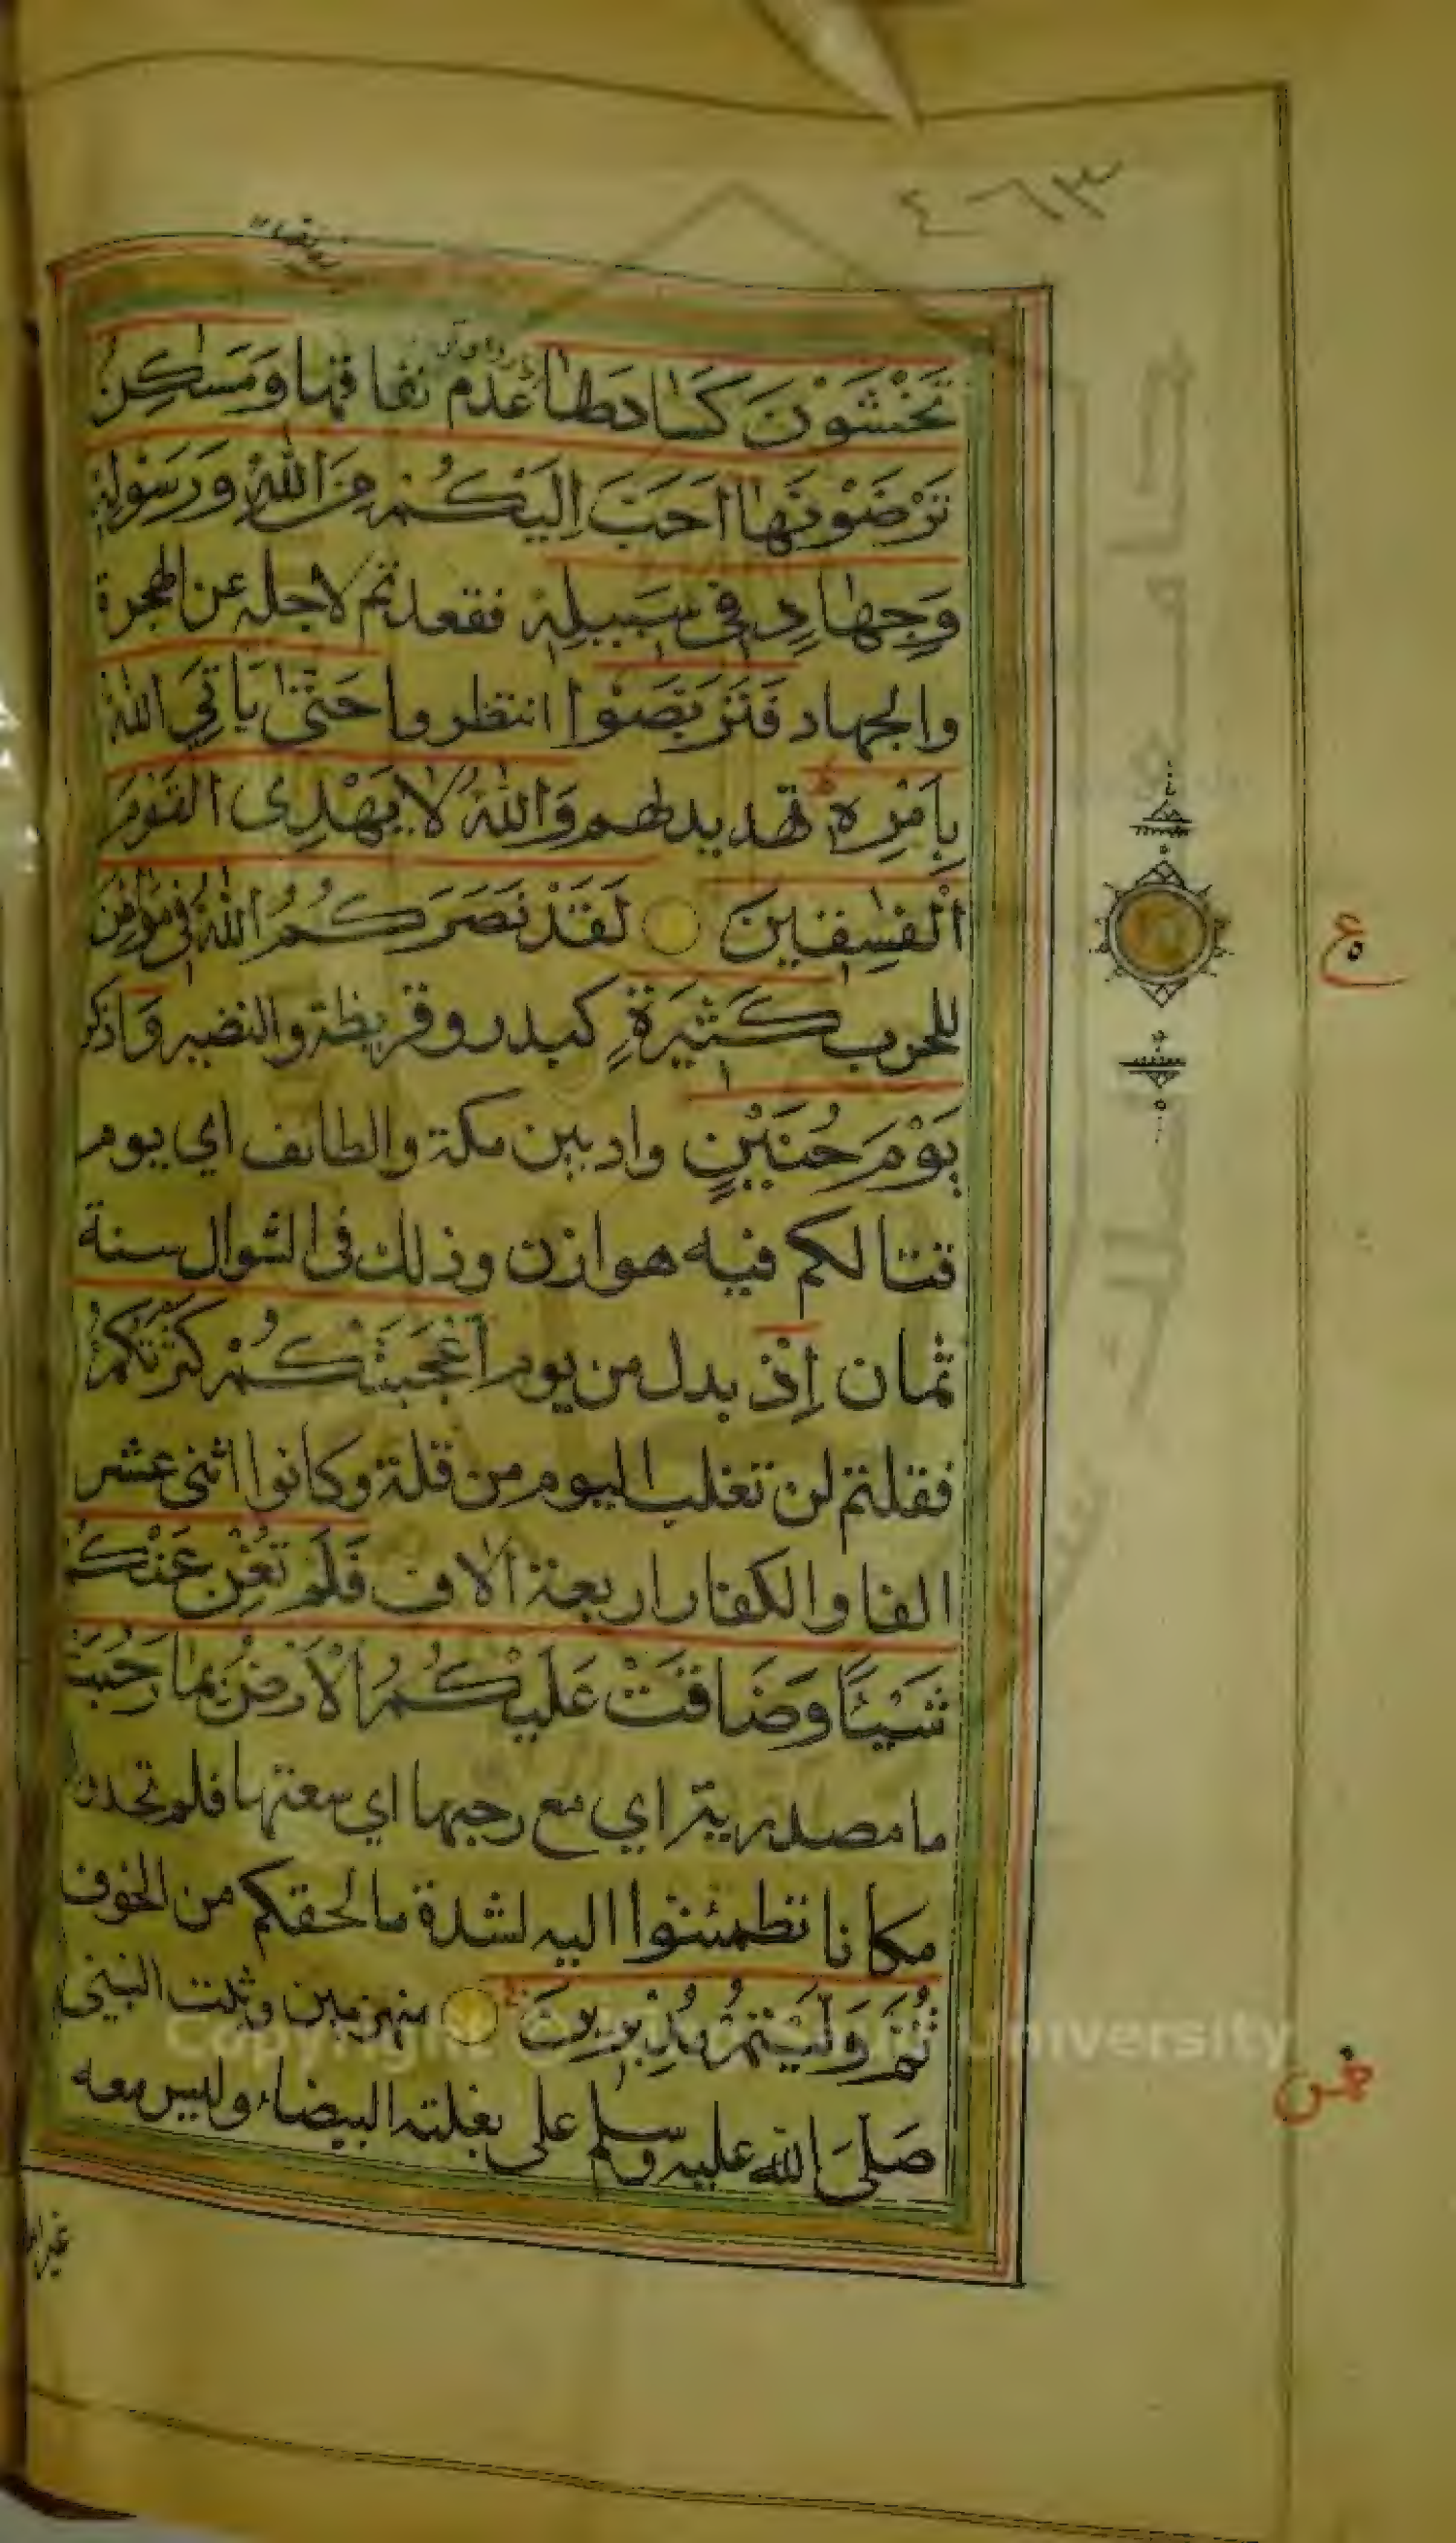 ٤٦٣
تَخْشَوْنَ كَسَادَهَا عدم نفاقها وَمَسٰكِنُ
تَرْضَوْنَهَا اَحَبَّ اِلَيْكُمْ مِنَ اللّٰهِ وَرَسُولِهٖ
وَجِهَادٍ فِى سَبِيلِهٖ فقعدتم لاجله عن الهجرة
والجهاد فَتَرَبَّصُوْا انتظروا حَتّٰى يَاْتِيَ اللّٰهُ
بِاَمْرِهٖ تهديد لهم وَاللّٰهُ لَا يَهْدِى الْقَوْمَ
الْفٰسِقِينَ لَقَدْ نَصَرَكُمُ اللّٰهُ فِى مَوَاطِنَ
للحرب كَثِيْرَةٍ كبدر وقريظة والنضير وَاذكر
يَوْمَ حُنَيْنٍ واد بين مكة والطائف اي يوم
قتالكم فيه هوازن وذلك فى الشوال سنة
ثمان اِذْ بدل من يوم اَعْجَبَتْكُمْ كَثْرَتُكُمْ
فقلتم لن تغلب اليوم من قلة وكانوا اثنى عشر
الفا والكفار اربعة آلاف فَلَمْ تُغْنِ عَنْكُمْ
شَيْئًا وَضَاقَتْ عَلَيْكُمُ الْاَرْضُ بِمَا رَحُبَتْ
ما مصدرية اي مع رحبها اي سعتها فلم تجدوا
مكانا تطمئنوا اليه لشدة ما لحقكم من الخوف
ثُمَّ وَلَّيْتُمْ مُدْبِرِيْنَ منهزمين وثبت النبي
صَلَّى اللّٰه عليه وسلم على بغلته البيضاء وليس معه
ع
ثمن
غير ابا
Copyright © University